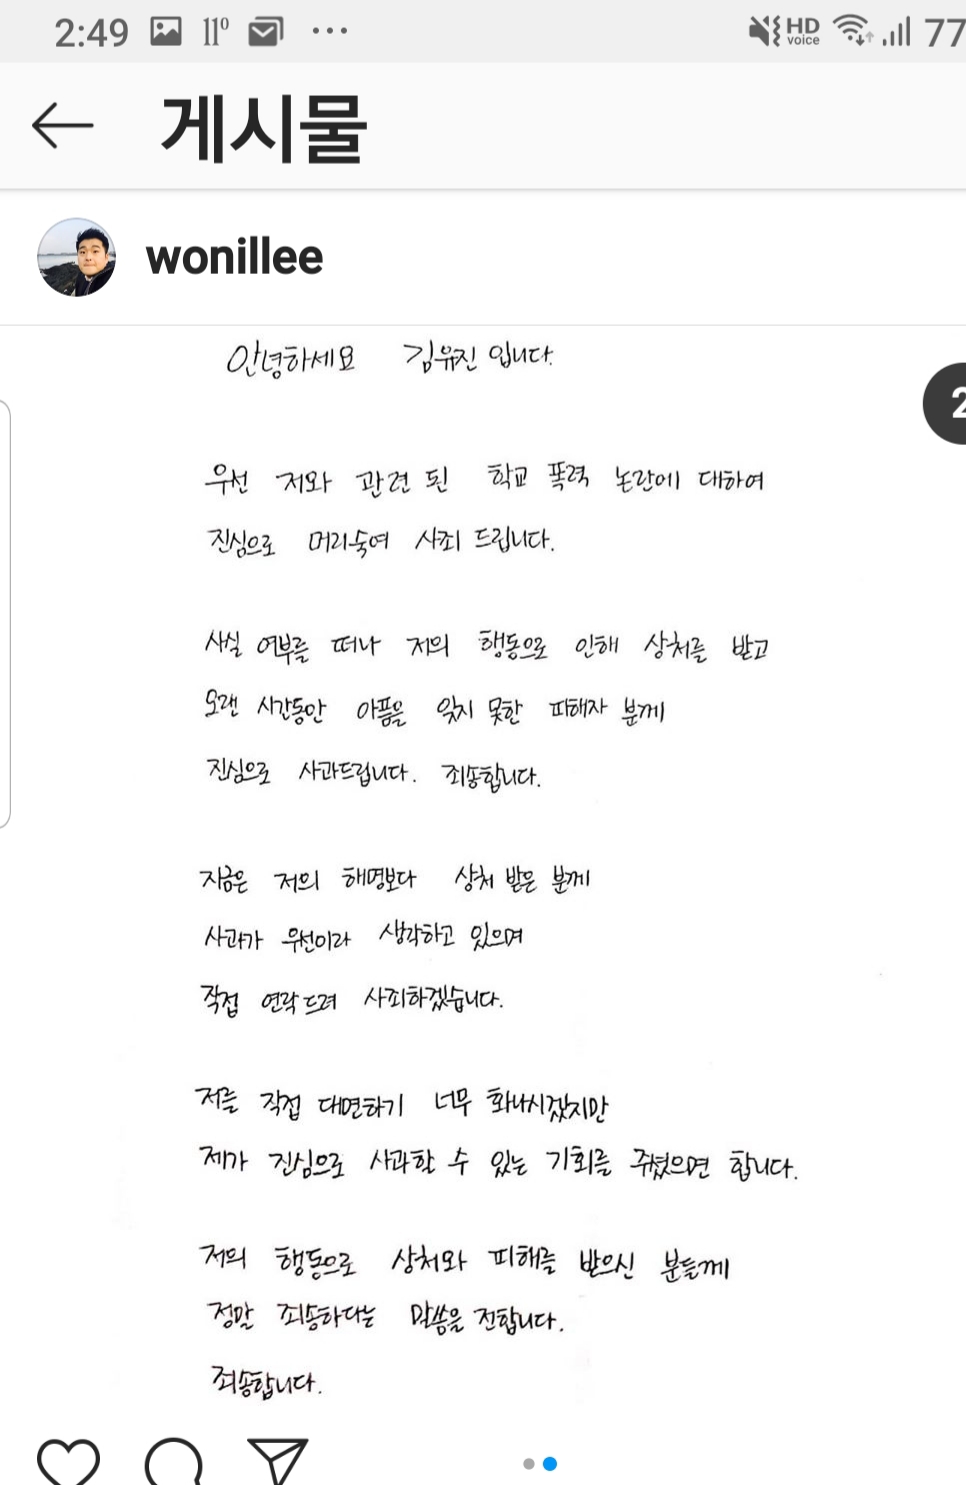 2:49 11° HD voice 77
게시물
wonillee
안녕하세요 김유진 입니다.
2
우선 저와 관련 된 학교 폭력 논란에 대하여
진심으로 머리숙여 사죄 드립니다.
사실 여부를 떠나 저의 행동으로 인해 상처를 받고
오랜 시간동안 아픔을 잊지 못한 피해자 분께
진심으로 사과드립니다. 죄송합니다.
지금은 저의 해명보다 상처 받은 분께
사과가 우선이라 생각하고 있으며
직접 연락드려 사죄하겠습니다.
저를 직접 대면하기 너무 화나시겠지만
제가 진심으로 사과할 수 있는 기회를 주셨으면 합니다.
저의 행동으로 상처와 피해를 받으신 분들께
정말 죄송하다는 말씀을 전합니다.
죄송합니다.